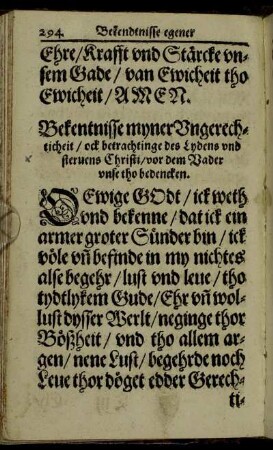 294. Bekendtnisse egener
Ehre/Krafft vnd Stärcke vn-
sem Gade/ van Ewicheit tho
Ewicheit/AMEN.
Bekentnisse myner Vngerech-
ticheit / ock betrachtinge des Lydens vnd
steruens Christi/vor dem Vader
vnse tho bedencken.
O Ewige GOdt/ick weth
vnd bekenne/dat ick ein
armer groter Sünder bin/ick
völe vñ befinde in my nichtes
alse begehr/lust vnd leue/tho
tydtlykem Gude/Ehr vñ wol-
lust dysser Werlt/neginge thor
Bößheit/ vnd tho allem ar-
gen/nene Lust/begehrde noch
Leue thor döget edder Gerech-
ti-